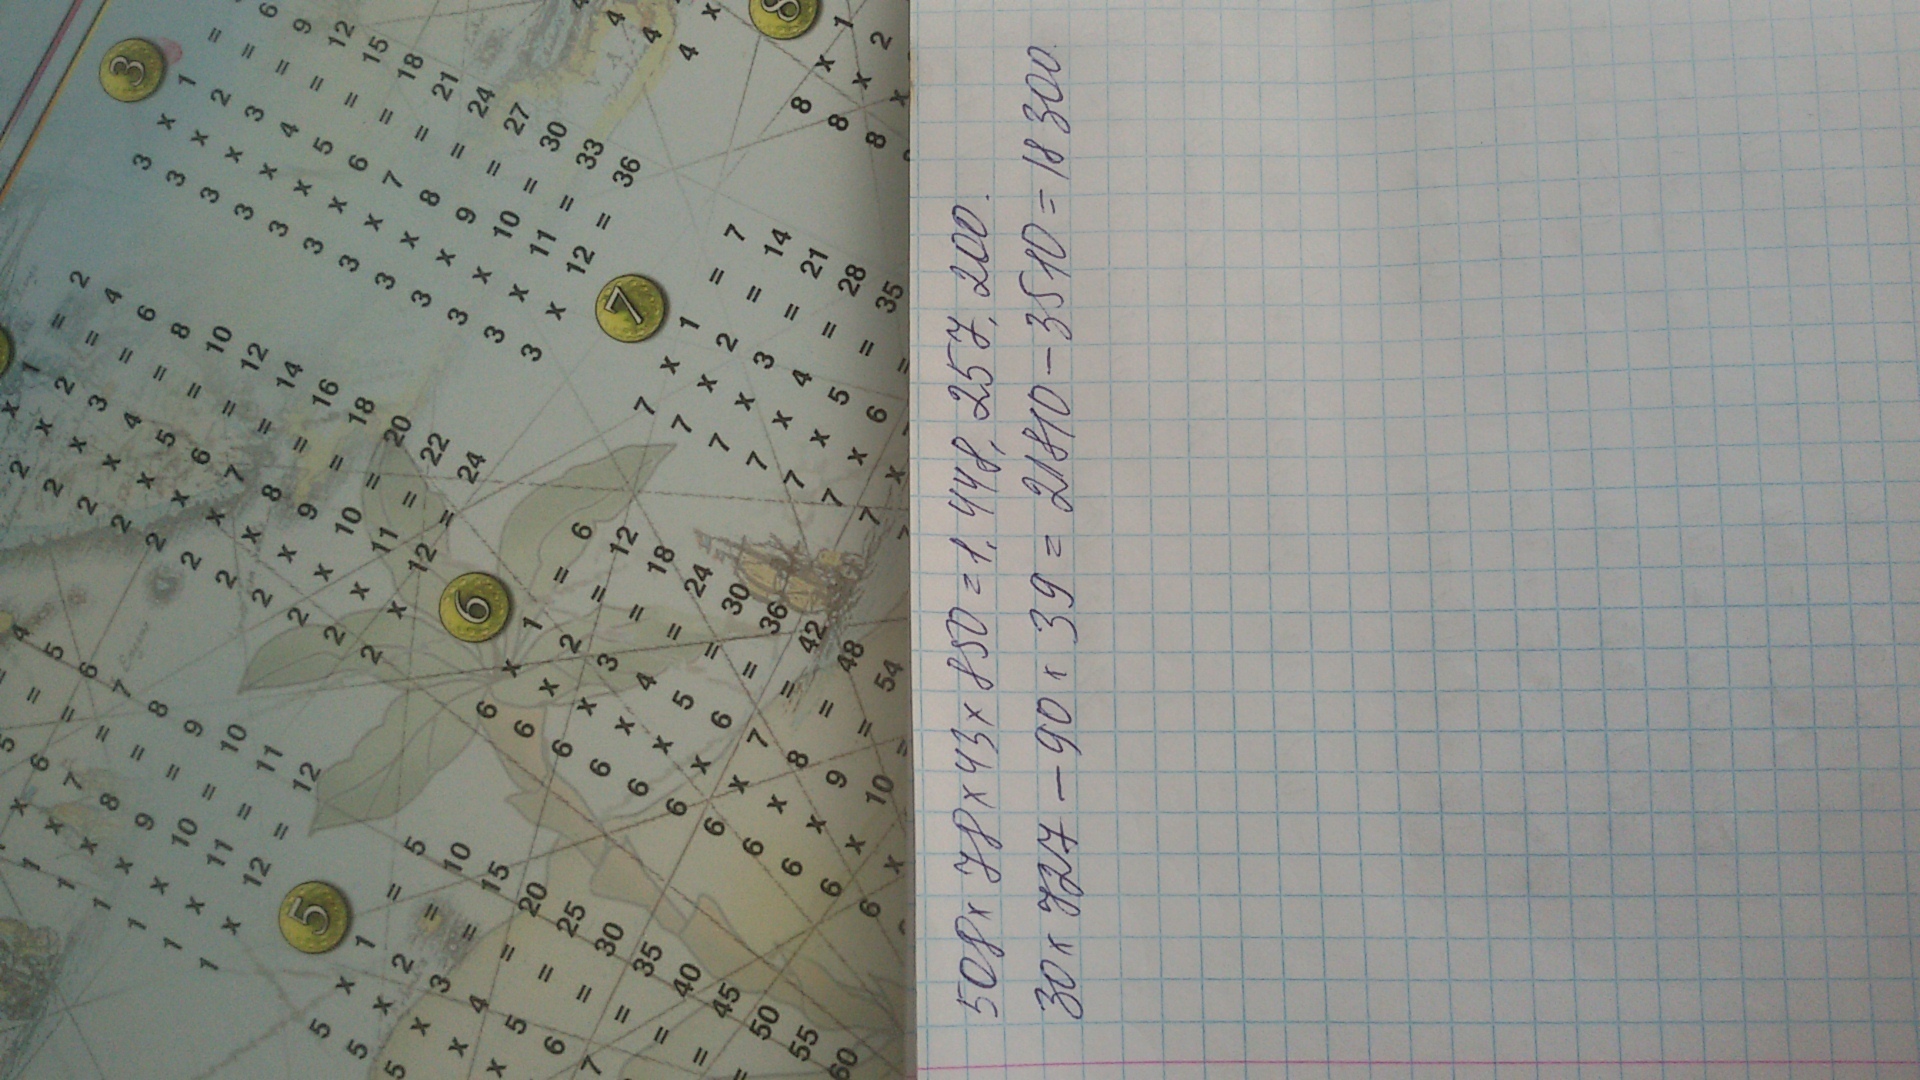 3
3 x 1 =
3 x 2 = 6
3 x 3 = 9
3 x 4 = 12
3 x 5 = 15
3 x 6 = 18
3 x 7 = 21
3 x 8 = 24
3 x 9 = 27
3 x 10 = 30
3 x 11 = 33
3 x 12 = 36
4
4
4
4 x
2 x 1 = 2
2 x 2 = 4
2 x 3 = 6
2 x 4 = 8
2 x 5 = 10
2 x 6 = 12
2 x 7 = 14
2 x 8 = 16
2 x 9 = 18
2 x 10 = 20
2 x 11 = 22
2 x 12 = 24
7
7 x 1 = 7
7 x 2 = 14
7 x 3 = 21
7 x 4 = 28
7 x 5 = 35
7 x 6 =
7 x
8
8 x 1
8 x 2
8 x
= 4
5 = 5
x 6 = 6
x 7 = 7
1 x 8 = 8
1 x 9 = 9
1 x 10 = 10
1 x 11 = 11
1 x 12 = 12
6
6 x 1 = 6
6 x 2 = 12
6 x 3 = 18
6 x 4 = 24
6 x 5 = 30
6 x 6 = 36
6 x 7 = 42
6 x 8 = 48
6 x 9 = 54
6 x 10 =
6 x
5
5 x 1 = 5
5 x 2 = 10
5 x 3 = 15
x 4 = 20
x 5 = 25
6 = 30
7 = 35
= 40
= 45
= 50
55
60
508 x 78 x 43 x 850 = 1. 448, 257, 200.
30 x 727 – 90 x 39 = 21810 – 3510 = 18 300.